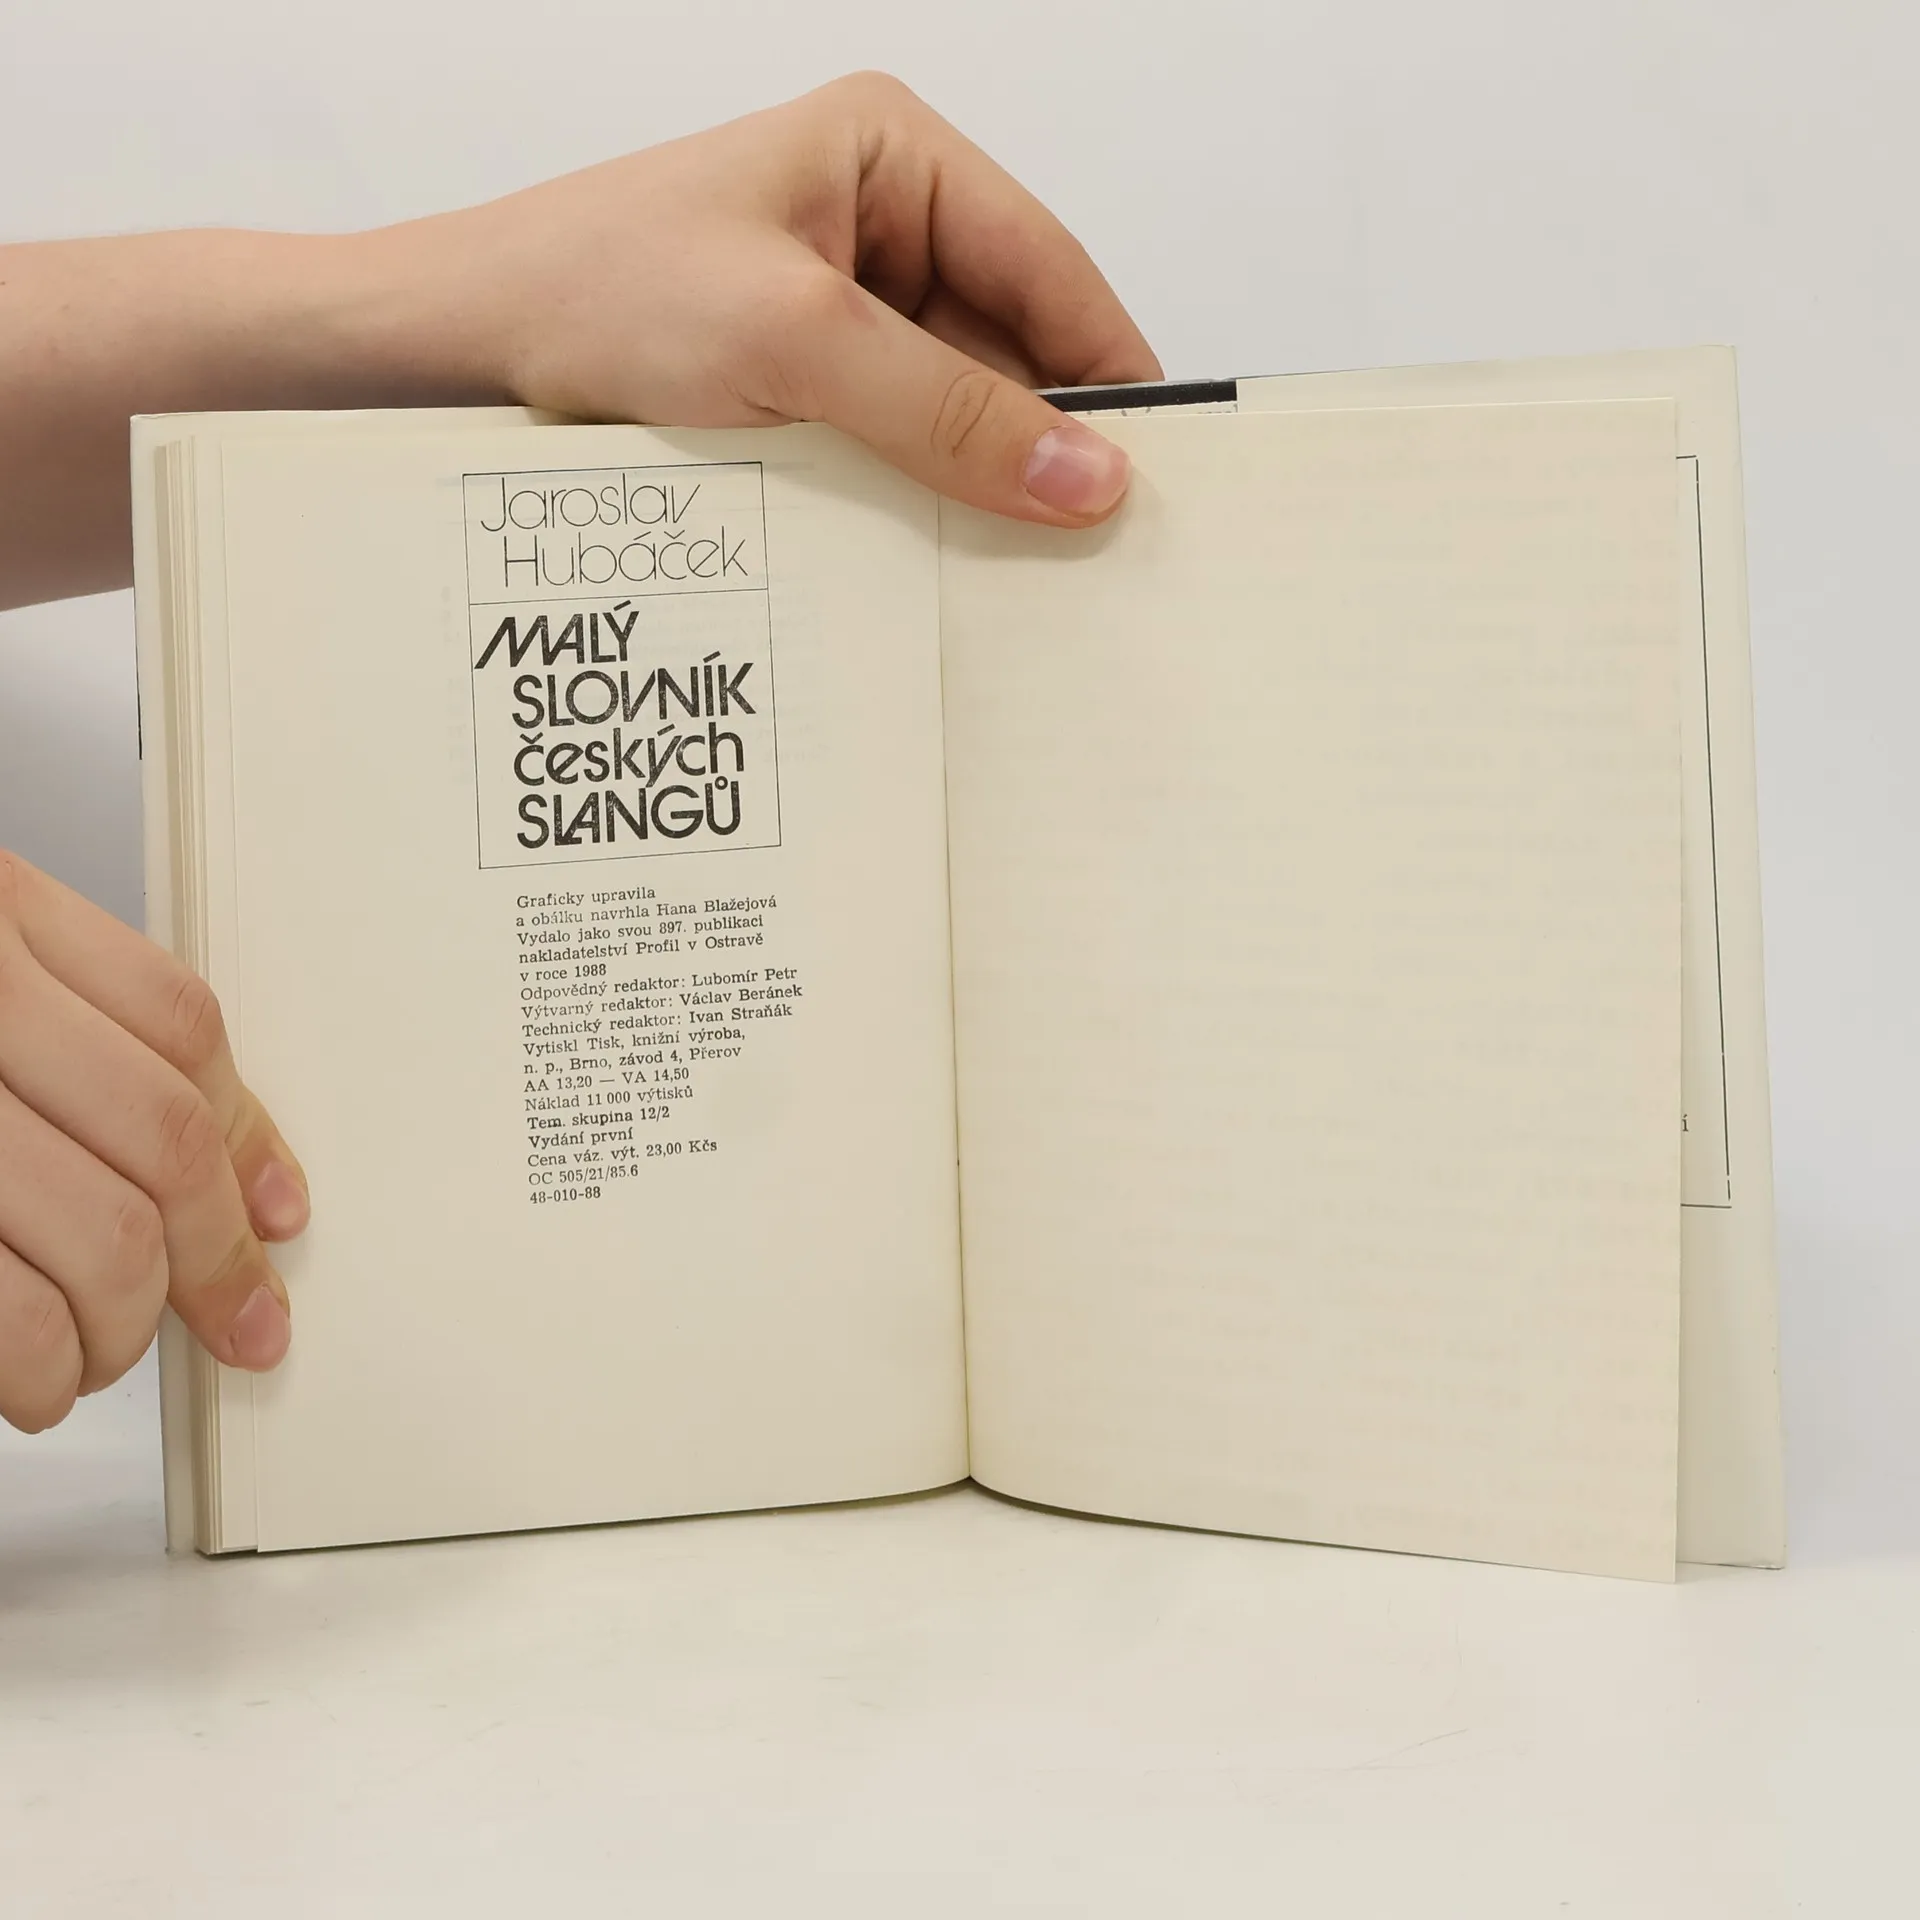 Jaroslav
Hubáček
MALÝ
SLOVNÍK
českých
SLANGŮ
Graficky upravila
a obálku navrhla Hana Blažejová
Vydalo jako svou 897. publikaci
nakladatelství Profil v Ostravě
v roce 1988
Odpovědný redaktor: Lubomír Petr
Výtvarný redaktor: Václav Beránek
Technický redaktor: Ivan Straňák
Vytiskl Tisk, knižní výroba,
n. p., Brno, závod 4, Přerov
AA 13,20 — VA 14,50
Náklad 11 000 výtisků
Tem. skupina 12/2
Vydání první
Cena váz. výt. 23,00 Kčs
OC 505/21/85.6
48-010-88